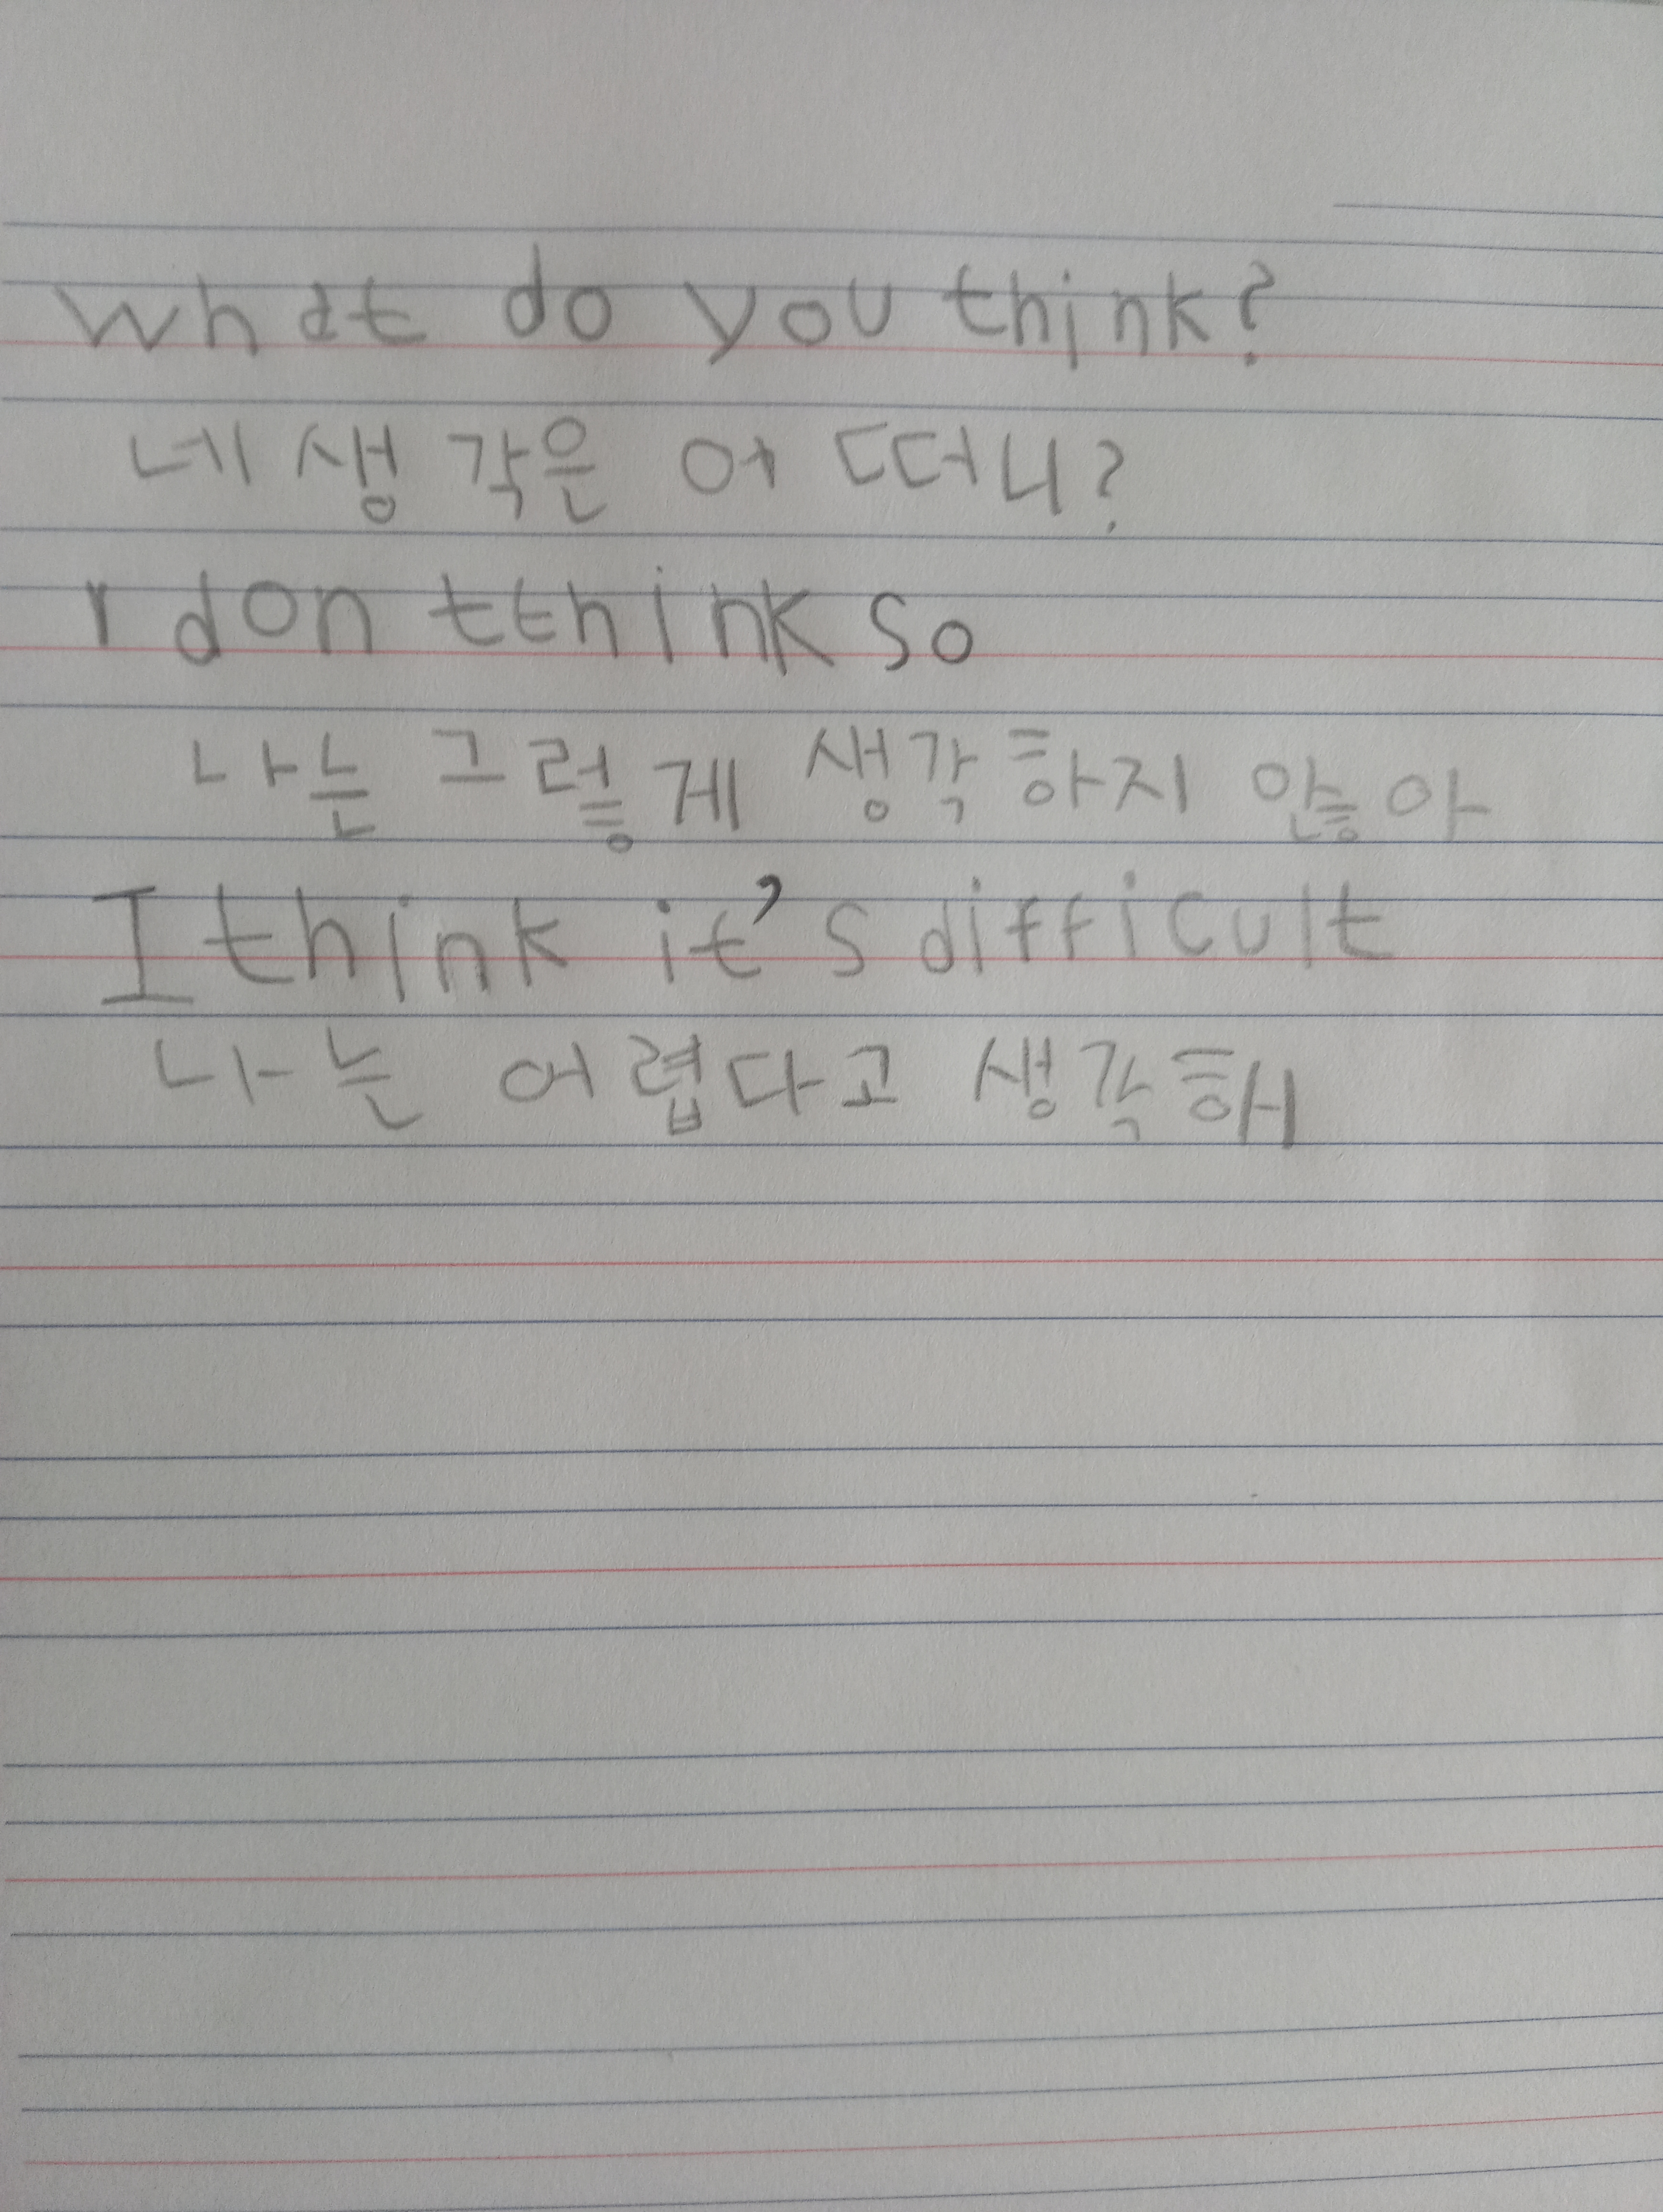 what do you think?
네 생각은 어떠니?
I don tthink so
나는 그렇게 생각하지 않아
I think it's difficult
나는 어렵다고 생각해